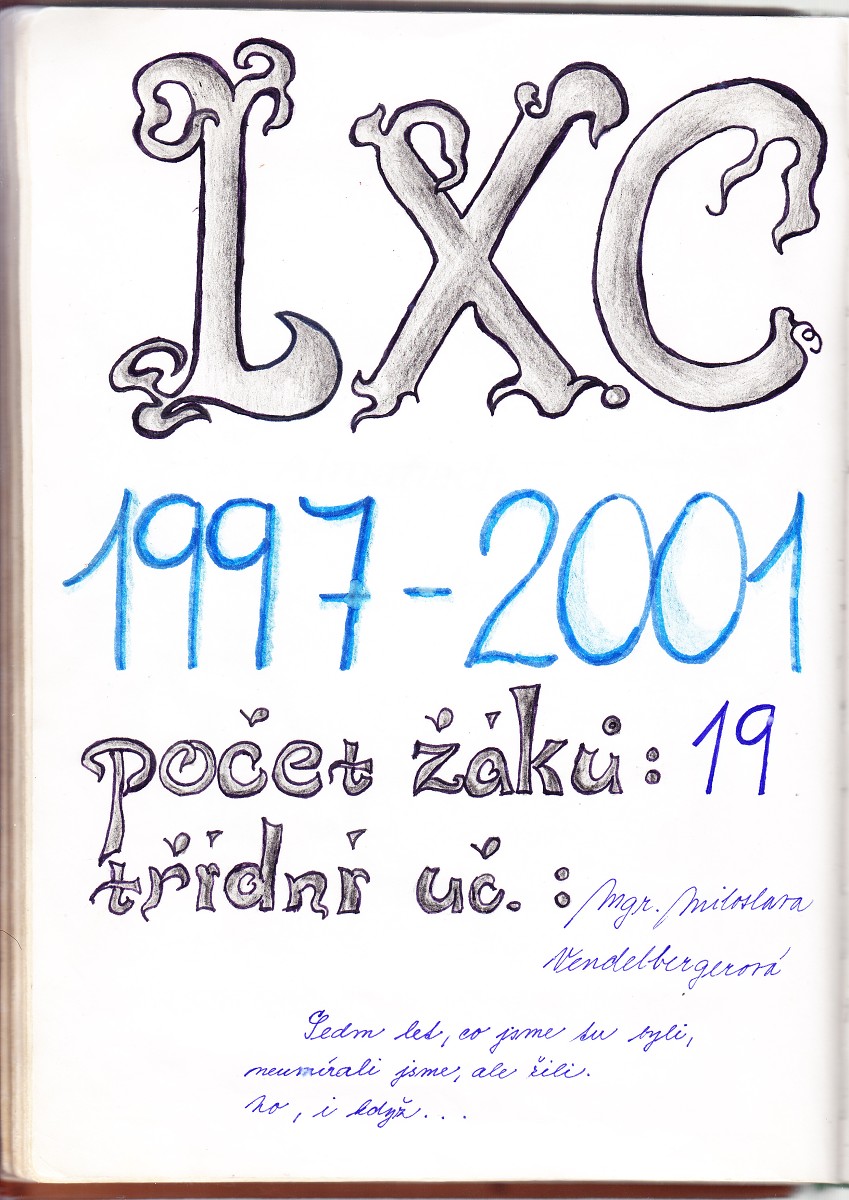 LXC
1997-2001
počet žáků: 19
třídní uč.: Mgr. Miloslava
Vendelbergerová
Sedm let, co jsme tu byli,
neumírali jsme, ale žili.
No, i když...